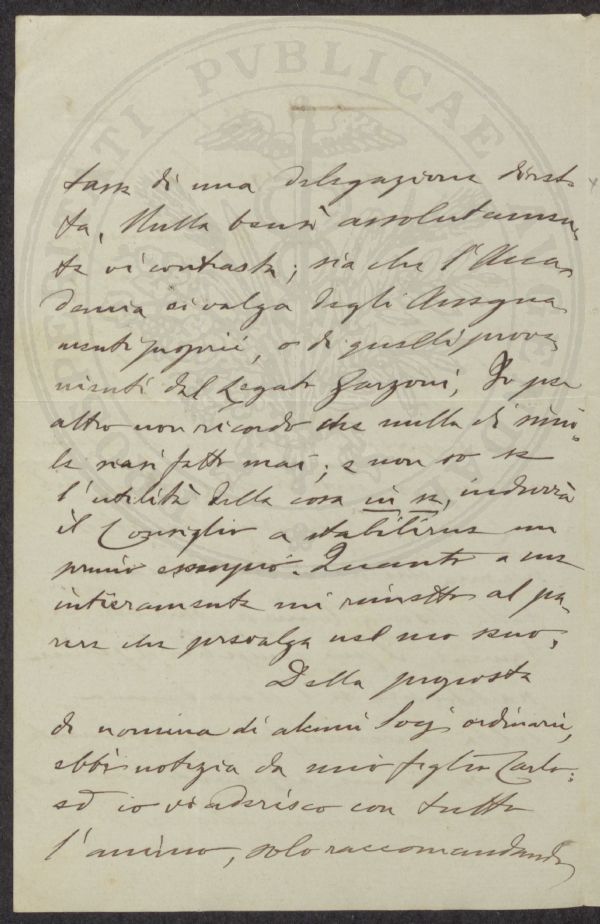 tare di una delegazione diret-
ta. Nulla bensì assolutamen-
te vi contrasta; sia che l'Acca-
demia si valga degli Assegna-
menti proprii, o di quelli prove-
nienti dal Legato Garzoni. Io per
altro non ricordo che nulla di simi-
le siasi fatto mai; e non so se
l'utilità della cosa in se, indurrà
il Consiglio a stabilirne un
primo esempio. Quanto a me
intieramente mi rimetto al pa-
rere che prevalga nel suo seno.
Della proposta
di nomina di alcuni Socj ordinarii,
ebbi notizia da mio figlio Carlo:
ed io vi aderisco con tutto
l'animo, solo raccomandando